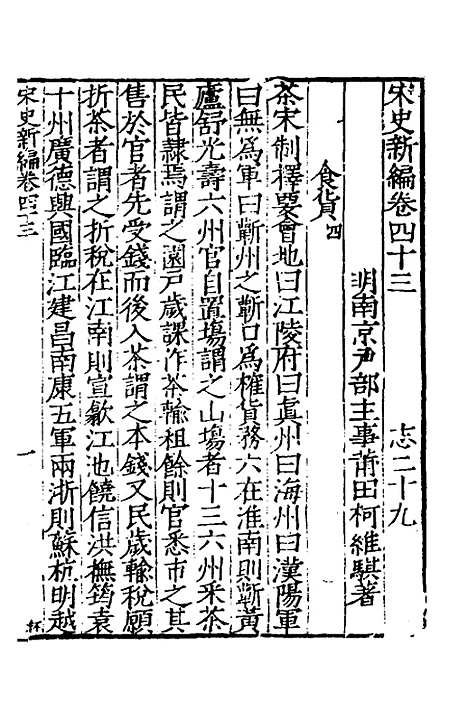 宋史新編卷四十三　志二十九
明南京戶部主事莆田柯維騏著
食貨四
茶宋制擇要會地曰江陵府曰真州曰海州曰漢陽軍
曰無為軍曰蘄州之蘄口為榷貨務六在淮南則蘄黃
廬舒光壽六州官自置場謂之山場者十三六州采茶
民皆隸焉謂之園戶歲課作茶輸租餘則官悉市之其
售於官者先受錢而後入茶謂之本錢又民歲輸稅願
折茶者謂之折稅在江南則宣歙江池饒信洪撫筠袁
十州廣德興國臨江建昌南康五軍兩浙則蘇杭明越
宋史新編卷四十三　一